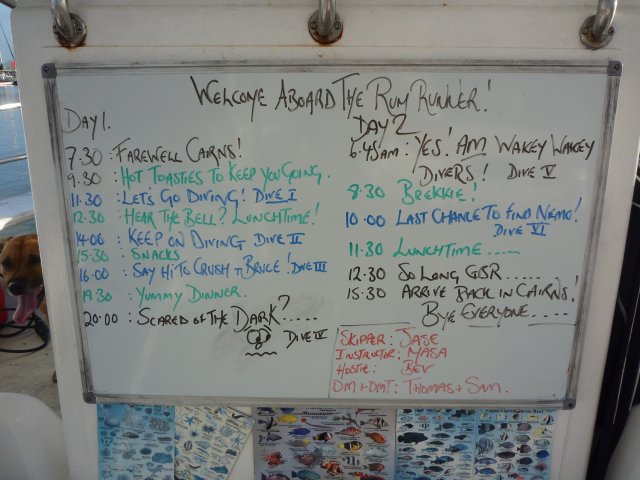 WELCOME ABOARD THE RUM RUNNER!
DAY 1.
7.30 : FAREWELL CAIRNS!
9.30 : HOT TOASTIES TO KEEP YOU GOING.
11.30 : LET'S GO DIVING! DIVE I
12.30 : HEAR THE BELL? LUNCHTIME!
14.00 : KEEP ON DIVING DIVE II
15.30 : SNACKS
16.00 : SAY HI TO CRUSH n BRUCE! DIVE III
19.30 : YUMMY DINNER.
20.00 : SCARED OF THE DARK?.....
DIVE IV
DAY 2
5.45AM : YES! AM WAKEY WAKEY
DIVERS! DIVE V
8.30 BREKKIE!
10.00 LAST CHANCE TO FIND NEMO!
DIVE VI
11.30 LUNCHTIME.....
12.30 SO LONG GBR.....
15.30 ARRIVE BACK IN CAIRNS!
BYE EVERYONE....
SKIPPER: JASE
INSTRUCTOR: MASA
HOSTIE: BEV
DM+DMT: THOMAS + SAM.